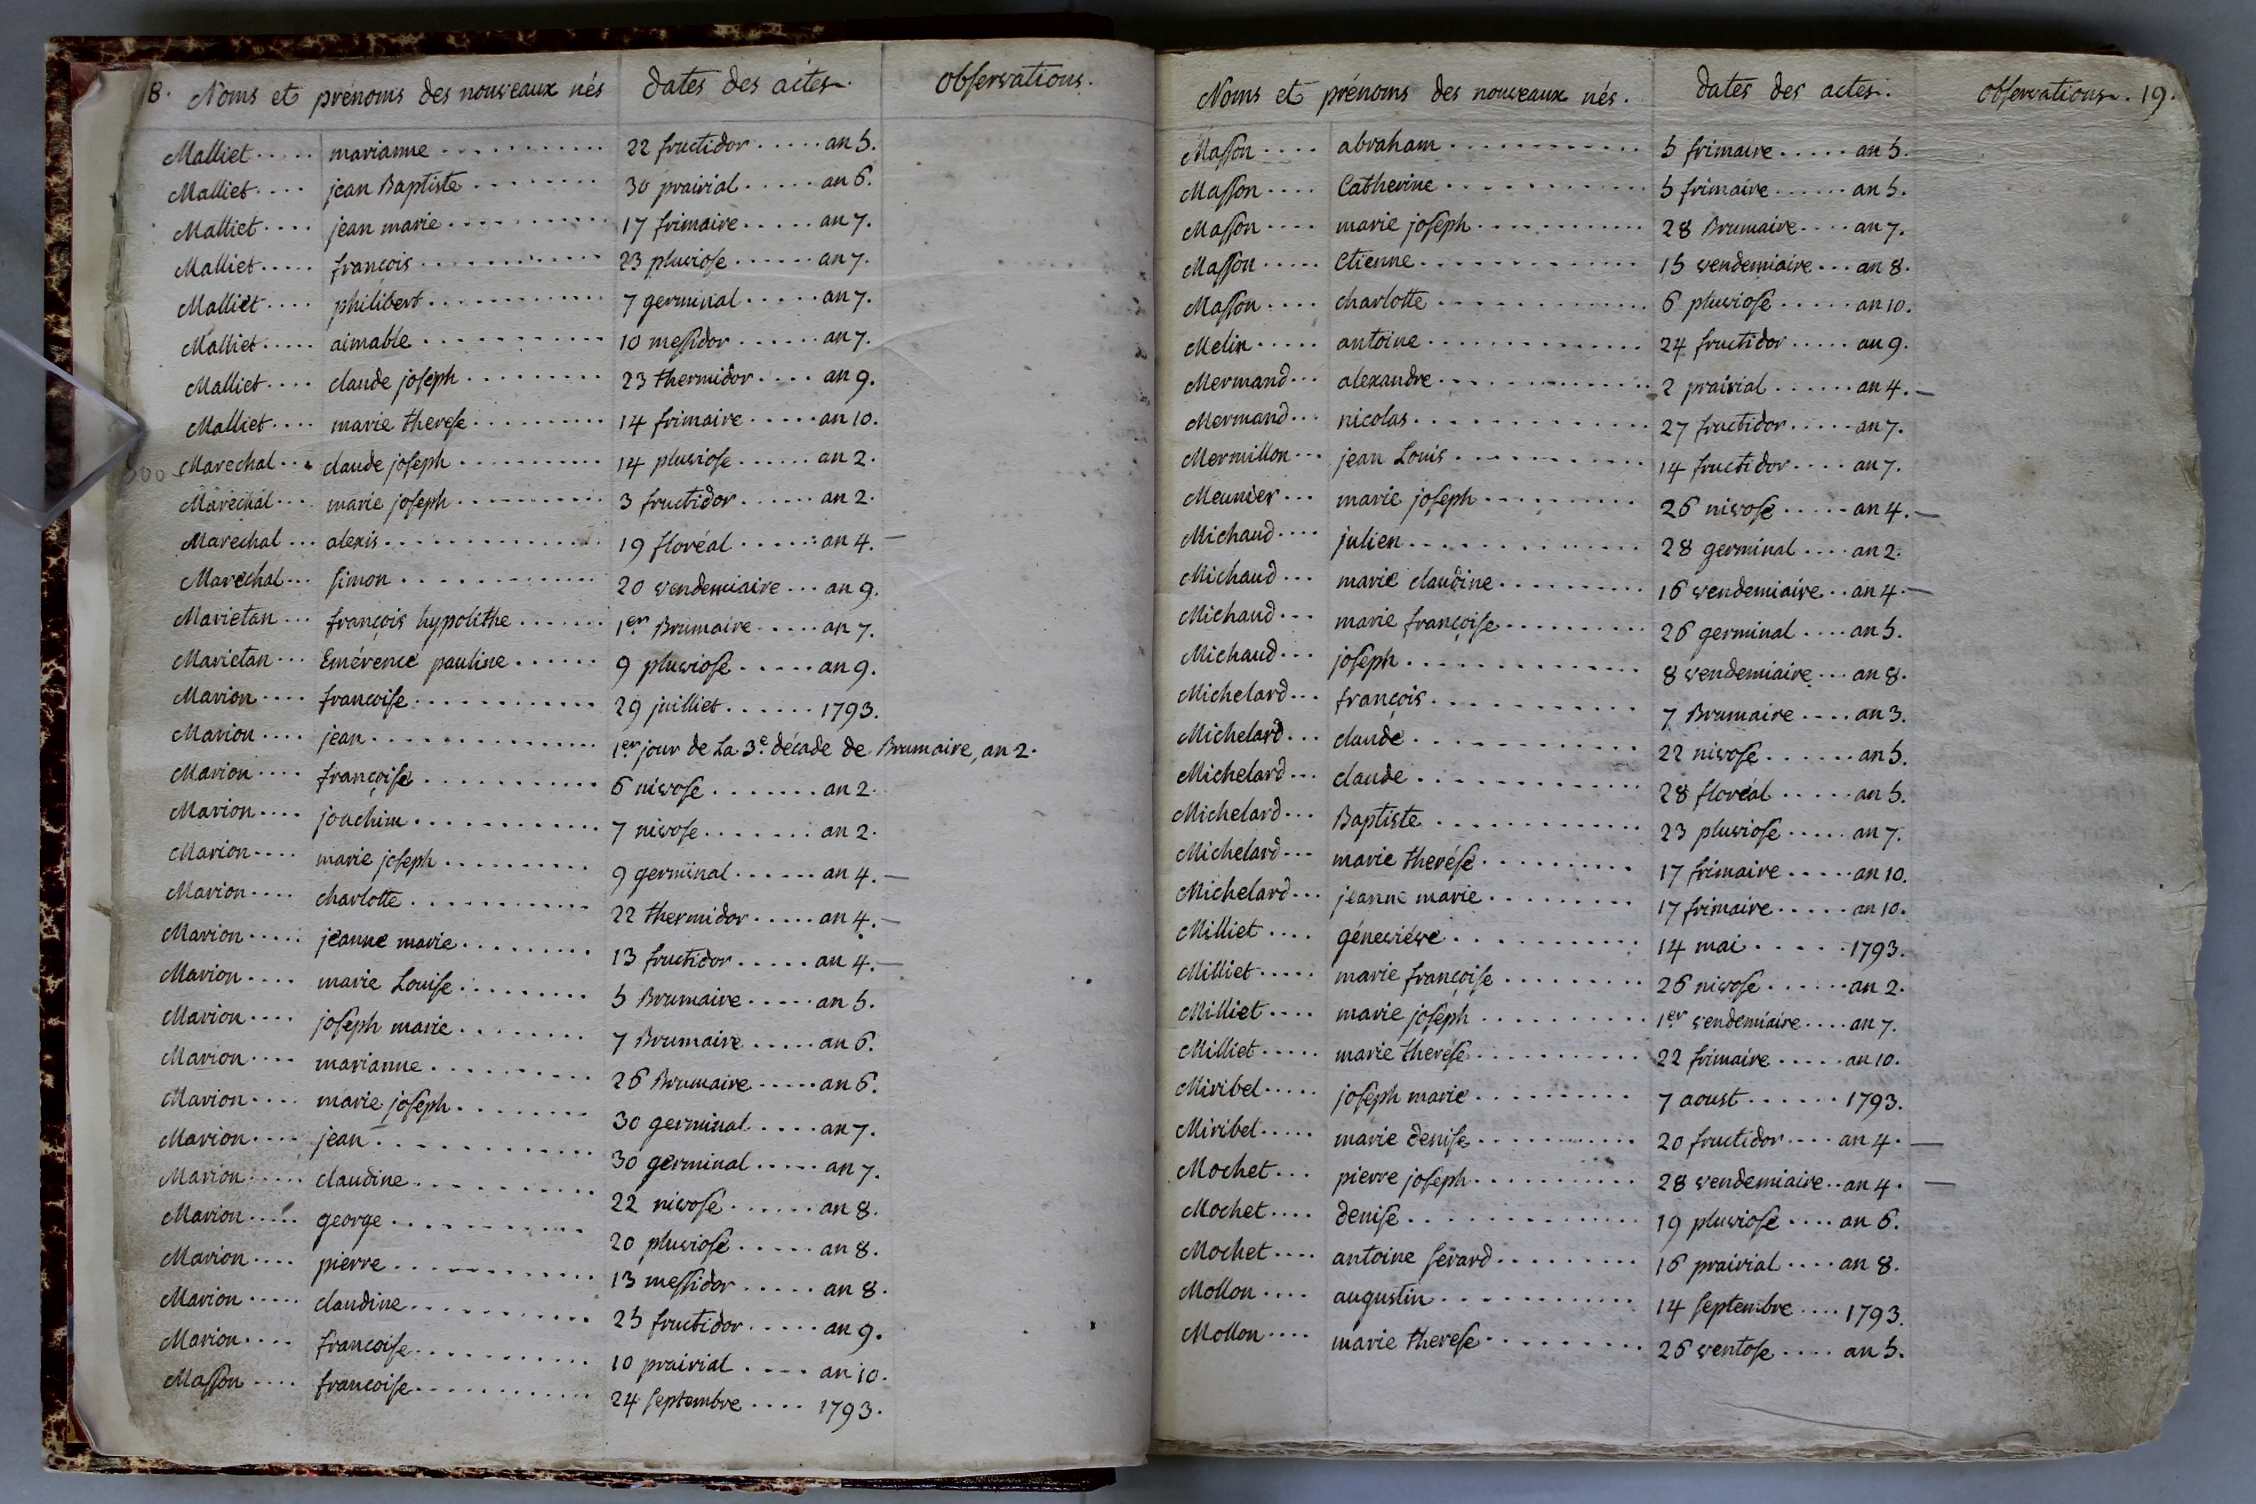 18. Noms et prénoms des nouveaux nés dates des actes. observations.
Malliet..... marianne........... 22 fructidor..... an 5.
Malliet.... jean Baptiste........ 30 prairial..... an 6.
Malliet.... jean marie.......... 17 frimaire..... an 7.
Malliet..... françois........... 23 pluviose...... an 7.
Malliet.... philibert........... 7 germinal..... an 7.
Malliet..... aimable........... 10 messidor...... an 7.
Malliet.... claude joseph......... 23 thermidor.... an 9.
Malliet.... marie therese......... 14 frimaire..... an 10.
Marechal... claude joseph.......... 14 pluviose...... an 2.
Marechal... marie joseph.......... 3 fructidor...... an 2.
Marechal... alexis.............. 19 floréal..... an 4. —
Marechal... simon............. 20 vendemiaire... an 9.
Marietan... françois hypolithe....... 1er Brumaire..... an 7.
Marietan... Emérence pauline...... 9 pluviose..... an 9.
Marion.... françoise............ 29 juilliet...... 1793.
Marion.... jean............... 1er jour de La 3e décade de Brumaire, an 2.
Marion.... françoise............ 6 nivose....... an 2.
Marion.... joachim............ 7 nivose....... an 2.
Marion.... marie joseph.......... 9 germinal...... an 4. —
Marion.... charlotte........... 22 thermidor..... an 4. —
Marion..... jeanne marie......... 13 fructidor..... an 4. —
Marion.... marie Louise......... 5 Brumaire..... an 5.
Marion.... joseph marie........ 7 Brumaire..... an 6.
Marion.... marianne.......... 26 Brumaire..... an 6.
Marion.... marie joseph........ 30 germinal..... an 7.
Marion.... jean............. 30 germinal..... an 7.
Marion..... claudine........... 22 nivose...... an 8.
Marion..... george........... 20 pluviose..... an 8.
Marion.... pierre............ 13 messidor..... an 8.
Marion..... claudine........... 25 fructidor..... an 9.
Marion.... françoise........... 10 prairial.... an 10.
Masson.... françoise............ 24 septembre.... 1793.
Noms et prénoms des nouveaux nés. dates des actes. observations. 19.
Masson.... abraham........... 5 frimaire..... an 5.
Masson.... Catherine........... 5 frimaire...... an 5.
Masson.... marie joseph............ 28 Brumaire.... an 7.
Masson..... Etienne............. 15 vendemiaire... an 8.
Masson.... charlotte............ 6 pluviose..... an 10.
Melin..... antoine............. 24 fructidor..... an 9.
Mermand... alexandre............ 2 prairial...... an 4. —
Mermand... nicolas............. 27 fructidor..... an 7.
Mermillon... jean Louis........... 14 fructidor.... an 7.
Meunier... marie joseph......... 26 nivose..... an 4. —
Michaud.... julien............. 28 germinal.... an 2.
Michaud... marie claudine......... 16 vendemiaire.. an 4. —
Michaud... marie françoise.......... 26 germinal.... an 5.
Michaud... joseph............. 8 vendemiaire... an 8.
Michelard... françois........... 7 Brumaire.... an 3.
Michelard... claude............. 22 nivose...... an 5.
Michelard... claude............. 28 floréal..... an 5.
Michelard... Baptiste............ 23 pluviose..... an 7.
Michelard... marie thérése......... 17 frimaire..... an 10.
Michelard... jeanne marie......... 17 frimaire..... an 10.
Milliet.... généviéve........... 14 mai...... 1793.
Milliet..... marie françoise......... 26 nivose...... an 2.
Milliet.... marie joseph.......... 1er vendemiaire.... an 7.
Milliet..... marie thérése........... 22 frimaire..... an 10.
Miribel..... joseph marie.......... 7 aoust...... 1793.
Miribel..... marie denise.......... 20 fructidor.... an 4. —
Mochet... pierre joseph........... 28 vendemiaire.. an 4. —
Mochet.... denise.............. 19 pluviose.... an 6.
Mochet.... antoine serard......... 16 prairial.... an 8.
Mollon.... augustin............ 14 septembre.... 1793.
Mollon.... marie therese......... 26 ventose.... an 5.